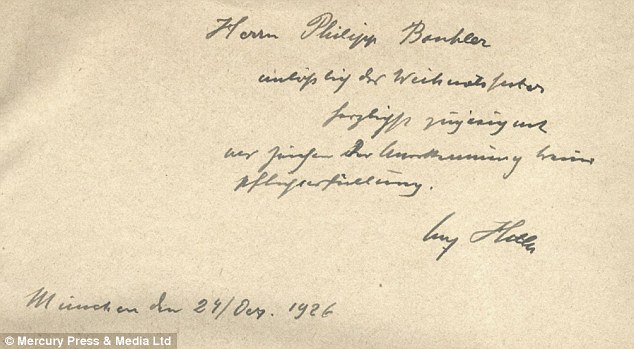 Herrn Philipp Bouhler
anläßlich des Weihnachtsfestes
herzlichst zugeeignet
der Anerkennung treuer
Pflichterfüllung.
Hitler
München den 24/Dez. 1926
© Mercury Press & Media Ltd